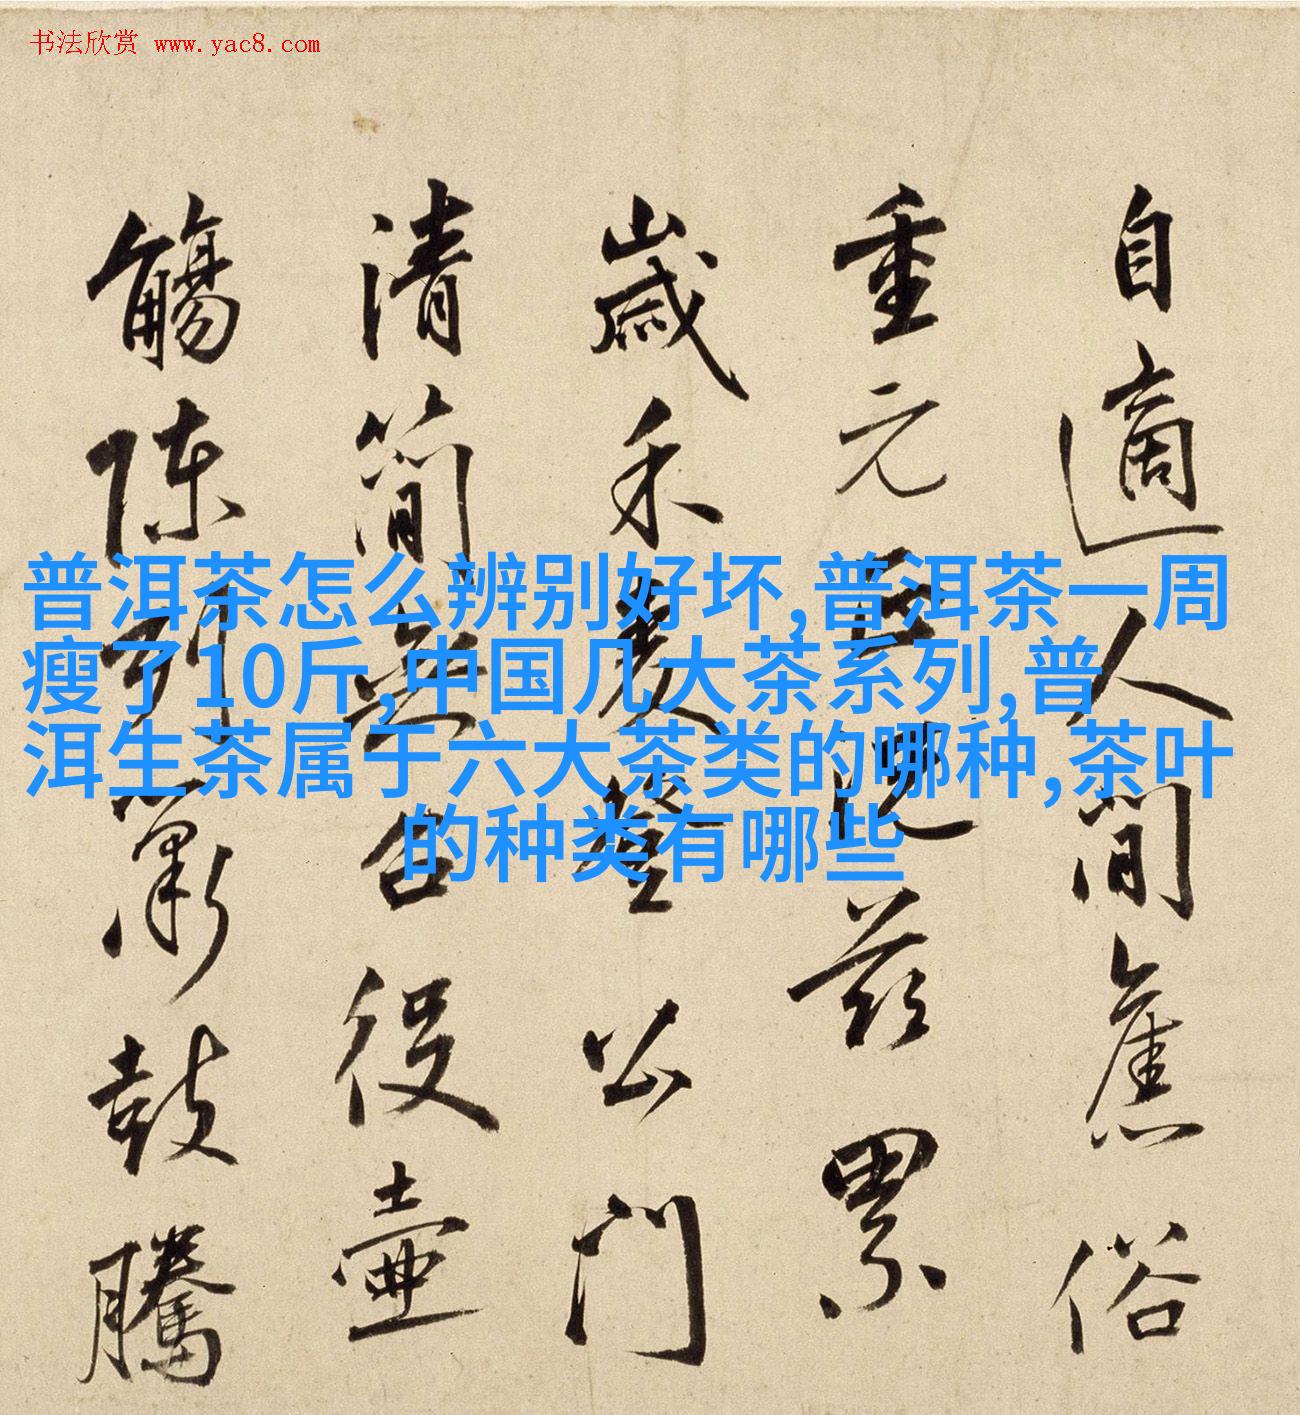 书法欣赏 www.yac8.com
自適人間舊俗
重元况茲累
歲禾麥登公門
清簡無召役壺
觴陳列簫鼓騰
普洱茶怎么辨别好坏,普洱茶一周
瘦了10斤,中国几大茶系列,普
洱生茶属于六大茶类的哪种,茶叶
的种类有哪些